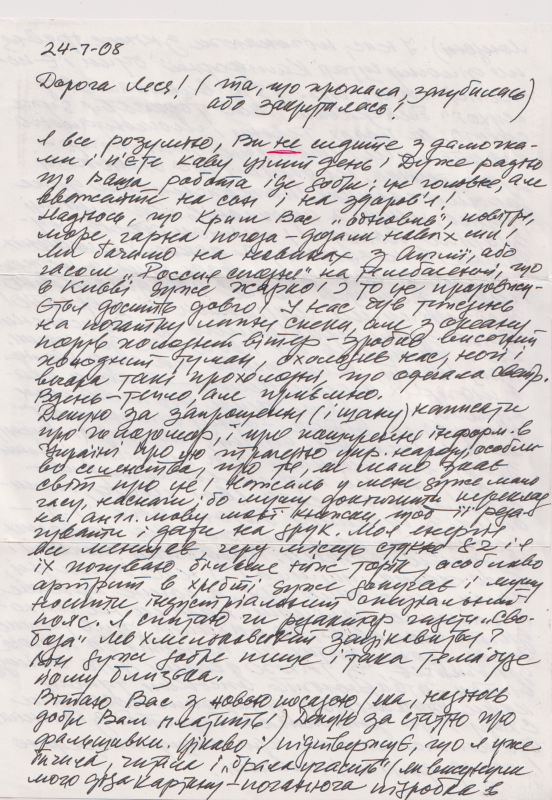 24-7-08
Дорога Леся! (та, що пропала, загубилась)
або закрутилась!
Я все розумію, Ви не сидите з дамочка-
ми і п'єте каву цілий день! Дуже радію
що Ваша робота іде добре; це головне, але
вважайте на сон і на здоров'я!
Надіюсь, що Крим Вас "обновив", повітря,
море, гарна погода - додали нових сил!
Ми бачимо на новинах з Англії, або
часом "Россия сегодня" на телебаченні, що
в Києві дуже жарко! І то це продовжу-
ється досить довго! У нас був тиждень
на початку липня спеки, але з океану
подув холодний вітер - зробив високий
холодний туман, охолодив нас, ночі і
вечора такі прохолодні, що одягала светр.
Вдень - тепло, але приємно.
Дякую за запрошення (і шану) написати
про голодомор, і про поширення інформ. в
Україні про цю трагедію укр. народу, особли-
во селянства, про те, як мало знає
світ про це! На жаль у мене дуже мало
часу, наснаги: бо мушу докінчити переклад
на англ. мову мої книжки, щоб її реда-
гувати і дати на друк. Моя енергія
все меншає, через місяць стукне 82 і я
їх почуваю більше ніж торік, особливо
артрит в хребті дуже докучає і мушу
носити індустріальний спиральний
пояс. Я спитаю чи редактор газети "Сво-
бода" Лев Хмельковський зацікавиться?
Він дуже добре пише і така тема буде
йому близька.
Вітаю Вас з новою посадою (яка, надіюсь
добре Вам платить!) Дякую за статтю про
фальшивки. Цікаво і підтверджує, що я уже
бачила, читала і "брала участь" (як
мого діда картину - поганюча підробка в